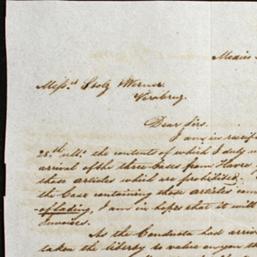 Mexico
Mess.rs Stolz Werner
Veracruz
Dear Sirs
I am in receipt
25th ulto. the contents of which I duly not
arrival of the three Cases from Havre
those articles which are prohibited,
the Case containing those articles
exploding, I am in hopes that it will
As the Conducta had arriv
taken the liberty to value on you th